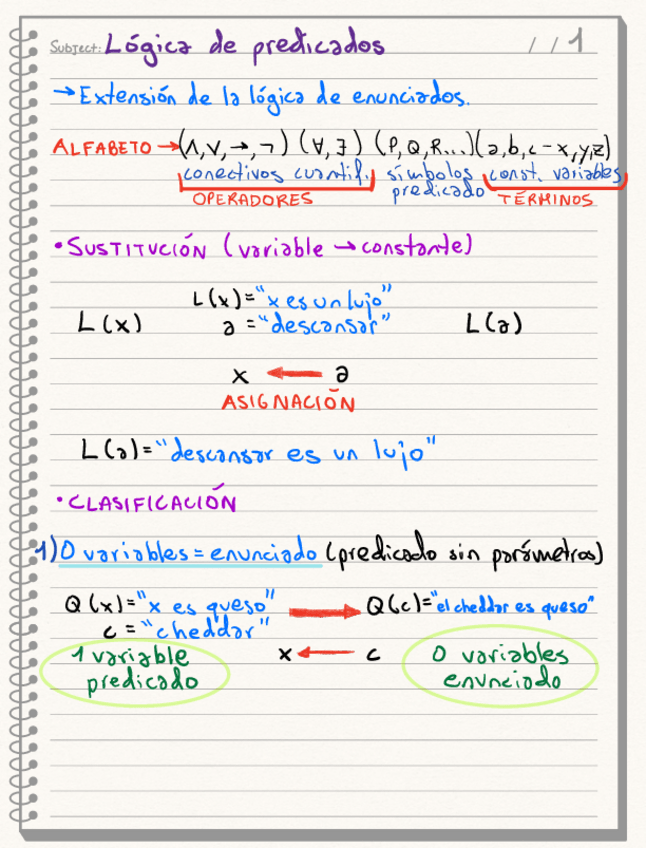 Subject: Lógica de predicados / / 1
→ Extensión de la lógica de enunciados.
ALFABETO → (∧, ∨, →, ¬) (∀, ∃) (P, Q, R...) (a, b, c - x, y, z)
conectivos cuantif. símbolos const. variables
predicado
OPERADORES TÉRMINOS
• SUSTITUCIÓN (variable → constante)
L(x) = "x es un lujo"
L(x) a = "descansar" L(a)
x ← a
ASIGNACIÓN
L(a) = "descansar es un lujo"
• CLASIFICACIÓN
1) 0 variables = enunciado (predicado sin parámetros)
Q(x) = "x es queso" → Q(c) = "el cheddar es queso"
c = "cheddar"
1 variable x ← c 0 variables
predicado enunciado